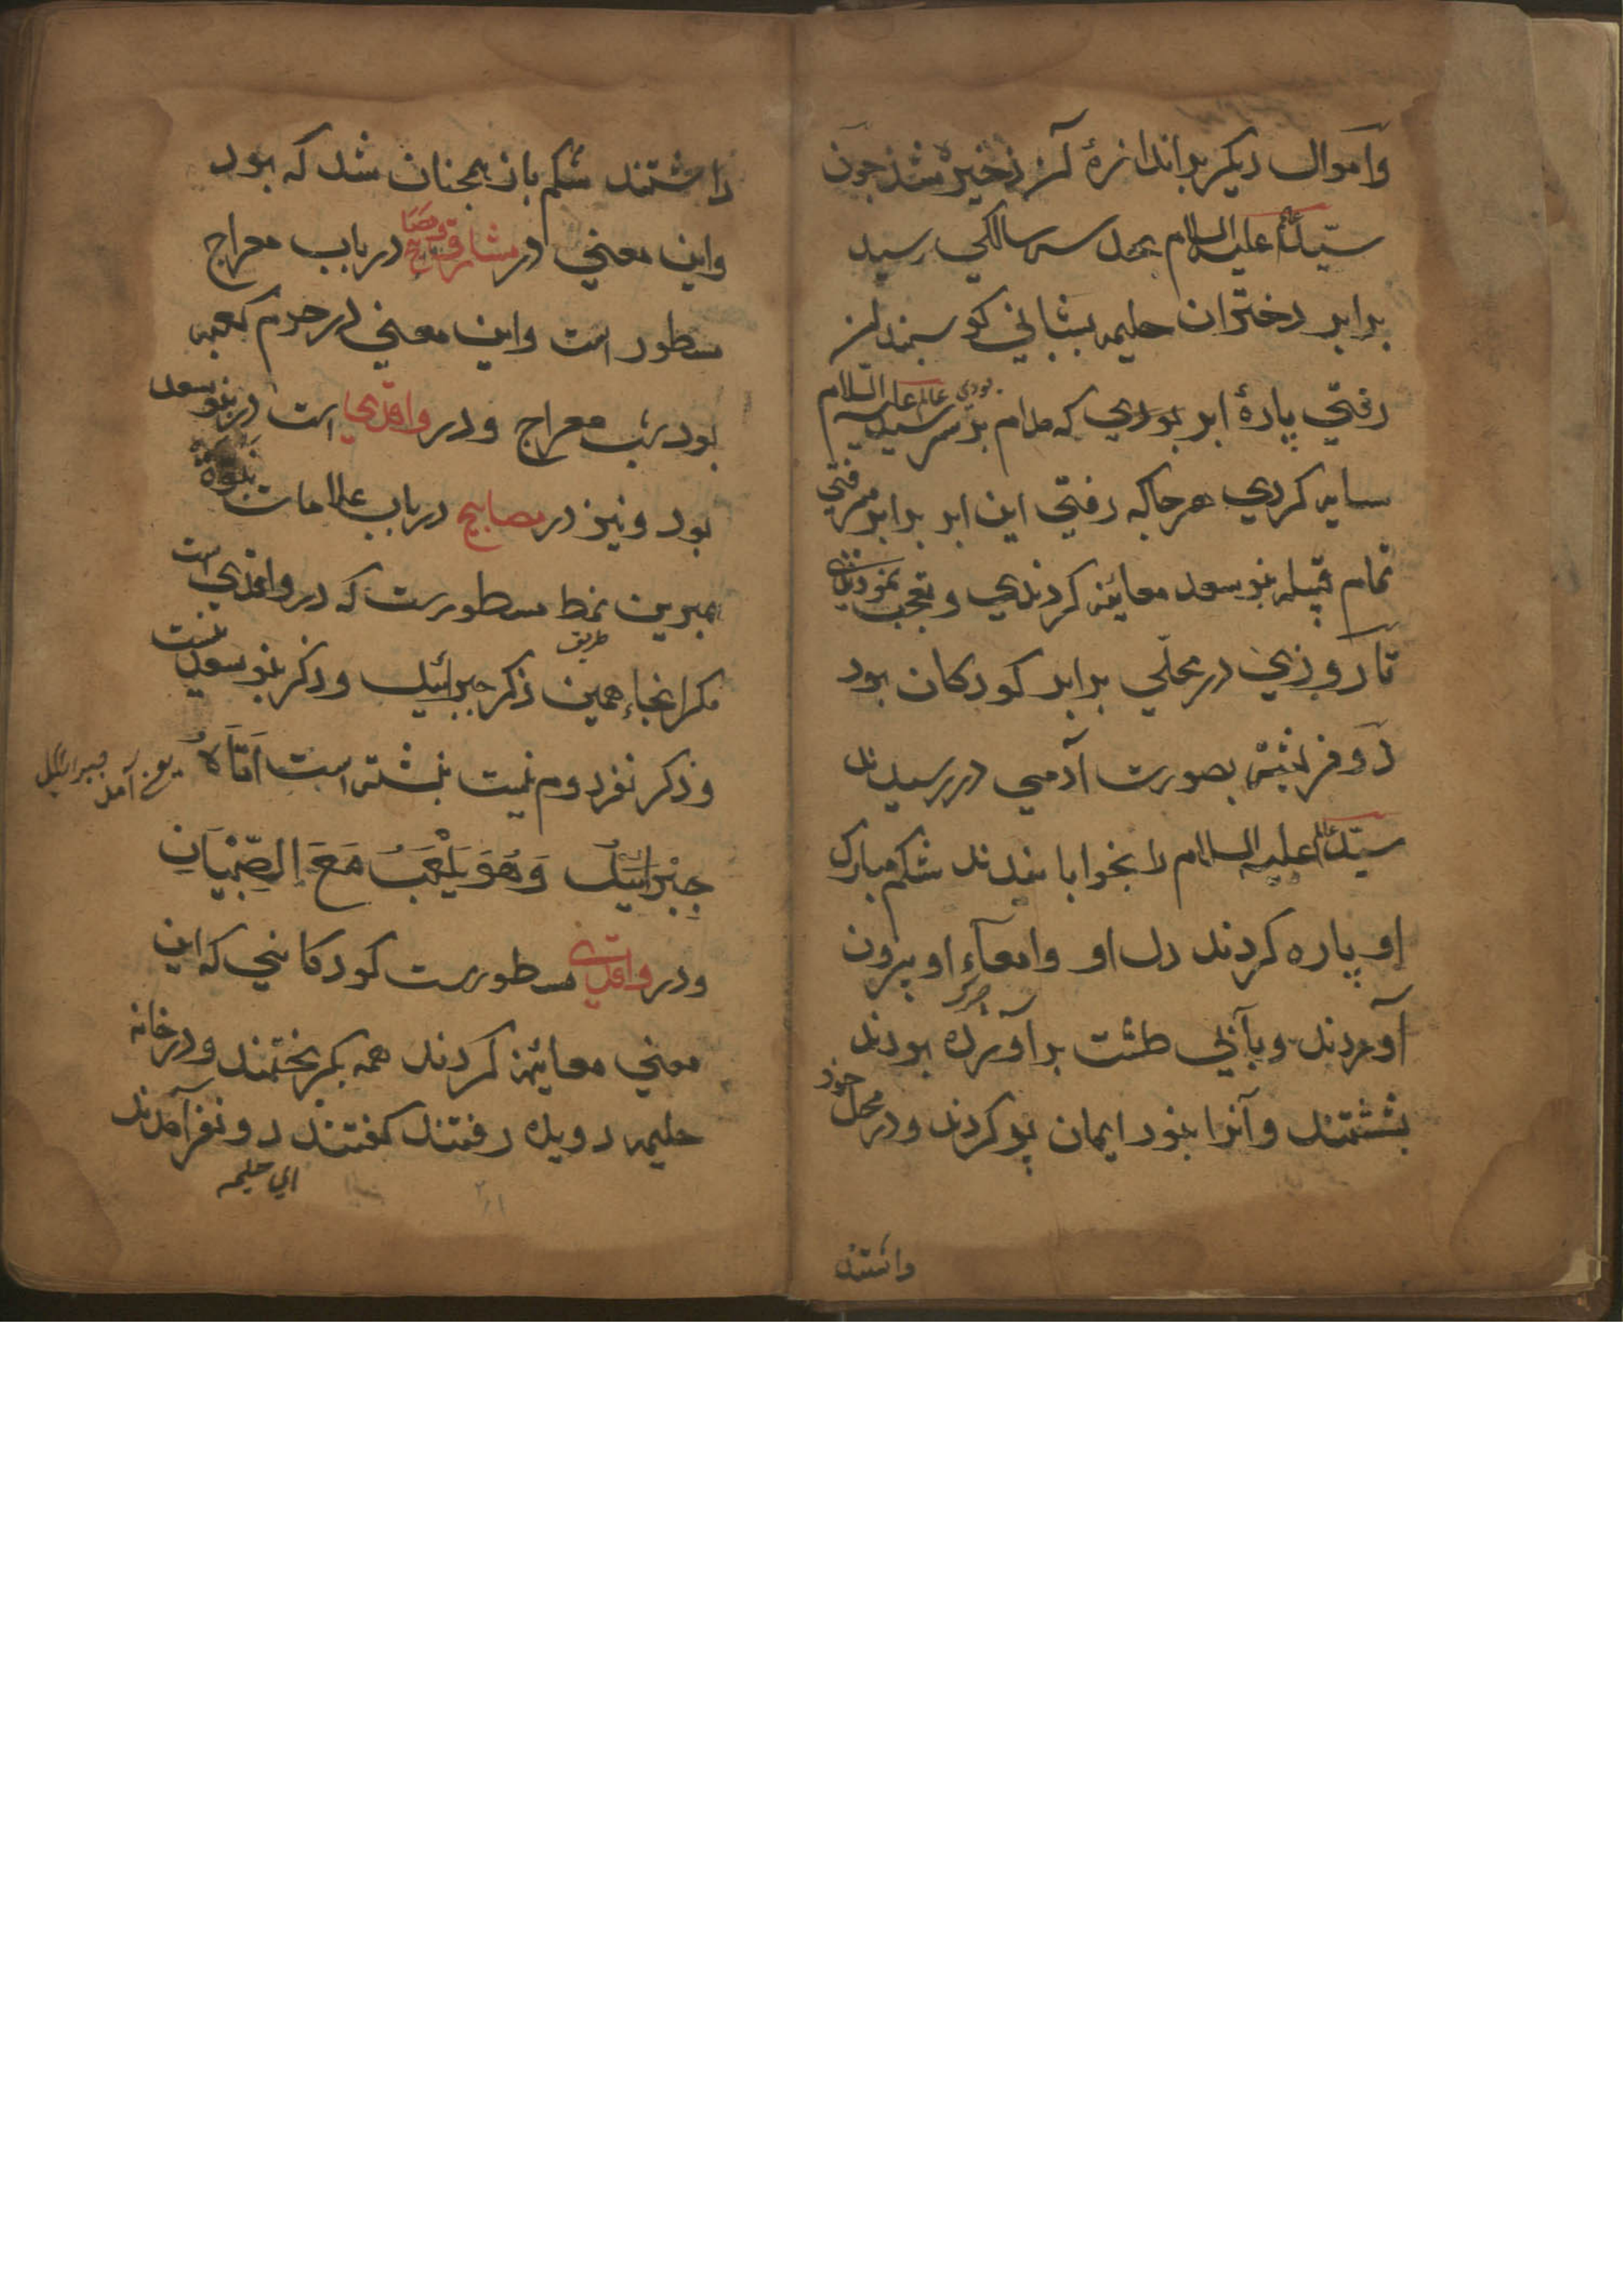 واموال دیکر بداندازهٔ آن ذخیره شد جون
سیّد علیه السلام بحد سه سالکی رسید
برابر دختران حلیمه بشبانی کوسبندان
رفتی پارهٔ ابر بودی که مدام بر سر سید عالم علیه السلام
سایه کردی هرجا که رفتی این ابر برابر رفتی
تمام قبیله بنو سعد معاینه کردندی و تعجب نمودندی
تا روزی در محلّی برابر کودکان بود
دو فرشته بصورت آدمی در رسیدند
سیّد علیه السلام را بخوابانیدند شکم مبارک
او پاره کردند دل او وامعاء او بیرون
آوردند وبآبی طشت برآورده بودند
بشستند وآنرا بنور ایمان پر کردند ودر محل خود
داشتند
داشتند شکم باز همجنان شد که بود
واین معنی در مشارق ومصابیح در باب معراج
مسطور است واین معنی در حرم کعبه
بود شب معراج ودر واقدی است در بنو سعد
بود ونیز در مصابیح در باب علامات نبوة
همبرین نمط مسطورست که در واقدی است
مکر اینجا همین طریق ذکر جبرائیل وذکر بنو سعد نیست
وذکر نفر دوم نیست نبشته است اَتَاهُ
یعنی آمد جبرائیل
جِبْرَائِيلُ وَهُوَ يَلْعَبُ مَعَ الصِّبْيَانِ
ودر واقدی مسطورست کودکانی که این
معنی معاینه کردند همه بکریختند ودر خانه
حلیمه دویده رفتند کفتند دو نفر آمدند
ای حلیمه